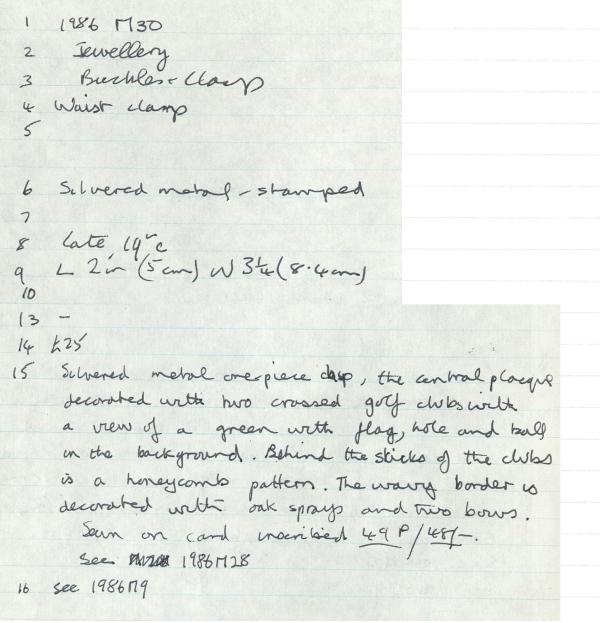 1 1986 M30
2 Jewellery
3 Buckles + Clasp
4 Waist clamp
5
6 Silvered metal - stamped
7
8 Late 19th c
9 L 2in (5cm) W 3¼ (8.4cm)
10
13 -
14 £25
15 Silvered metal onepiece clasp, the central placque
decorated with two crossed golf clubs with
a view of a green with flag, hole and ball
in the background. Behind the sticks of the clubs
is a honeycomb pattern. The wavy border is
decorated with oak sprays and two bows.
Sewn on card inscribed 49P/48/-.
See 1986M28
16 see 1986M9